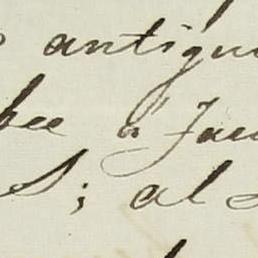 antigu
bee a Jau
S; al